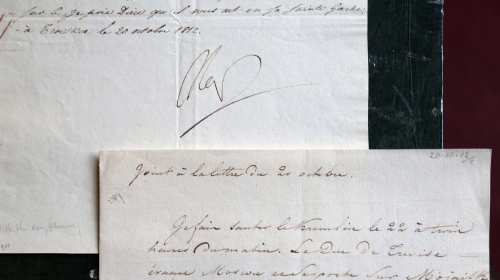 sur le Je prie Dieu qu'il vous ait en Sa Sainte Garde,
à Troïtskoe, le 20 octobre 1812.
Nap
Joint à la lettre du 20 octobre.
Je fais sauter le Kremlin le 22 à trois
heures du matin. Le Duc de Trévise
évacue Moscou et se porte sur Mojaïsk